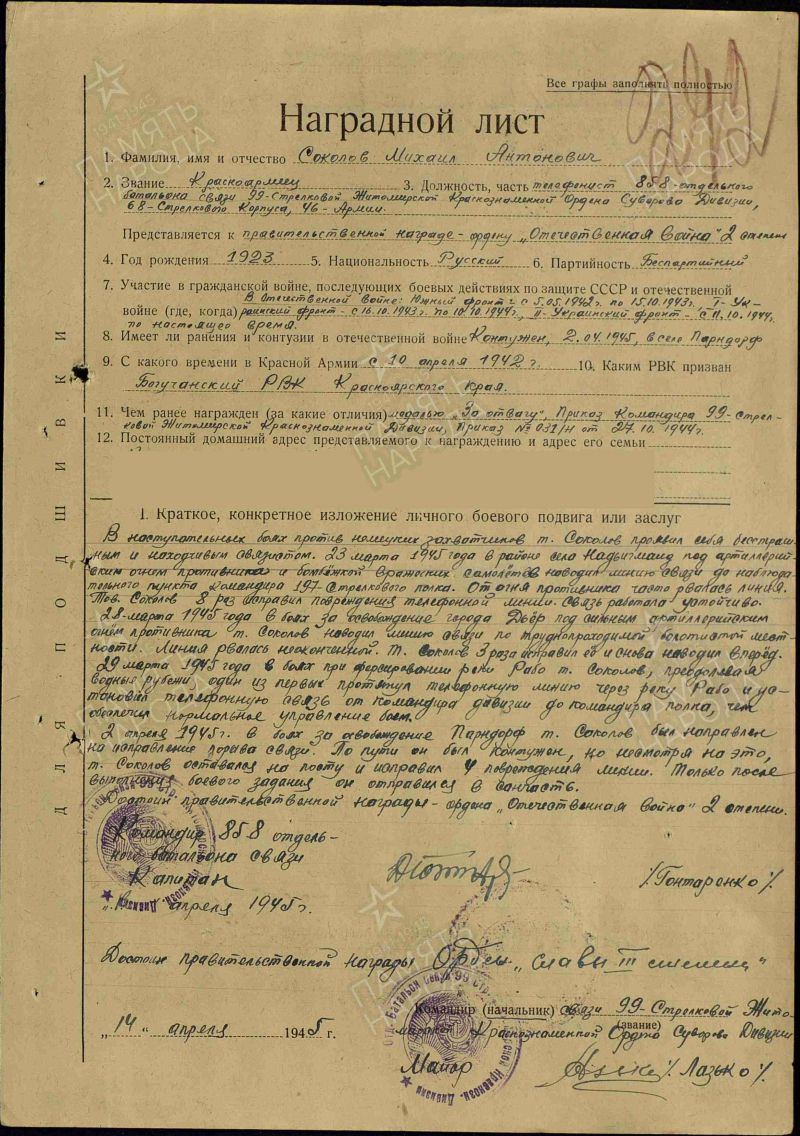 Все графы заполнять полностью
Наградной лист
1. Фамилия, имя и отчество Соколов Михаил Антонович
2. Звание Красноармеец 3. Должность, часть телефонист 858-отдельного
батальона связи 99-Стрелковой Житомирской Краснознаменной Ордена Суворова Дивизии,
68-Стрелкового Корпуса, 46-Армии.
Представляется к правительственной награде - ордену „Отечественная Война" 2 степени
4. Год рождения 1923 5. Национальность Русский 6. Партийность Беспартийный
7. Участие в гражданской войне, последующих боевых действиях по защите СССР и отечественной
В Отечественной Войне: Южный фронт с 5.05.1942г. по 15.10.1943г. I-Ук-
войне (где, когда) раинский фронт - с 16.10.1943г. по 10.10.1944г., II-Украинский фронт - с 11.10.1944г.
по настоящее время.
8. Имеет ли ранения и контузии в отечественной войне Контужен, 2.04.1945, в селе Парндорф
9. С какого времени в Красной Армии с 10 апреля 1942г. 10. Каким РВК призван
Богучанский РВК Красноярского Края.
11. Чем ранее награжден (за какие отличия) медалью „За отвагу", Приказ Командира 99-Стрел-
ковой Житомирской Краснознаменной Дивизии, Приказ № 031/н от 27.10.1944г.
12. Постоянный домашний адрес представляемого к награждению и адрес его семьи
I. Краткое, конкретное изложение личного боевого подвига или заслуг
В наступательных боях против немецких захватчиков т. Соколов проявил себя бесстраш-
ным и находчивым связистом. 23 марта 1945 года в районе села Надьигманд под артиллерий-
ским огнем противника и бомбёжкой вражеских самолётов наводил линию связи до наблюда-
тельного пункта командира 197-Стрелкового полка. От огня противника часто рвалась линия.
Тов. Соколов 8 раз исправил повреждения телефонной линии. Связь работала устойчиво.
28-марта 1945 года в боях за освобождение города Дьёр под сильным артиллерийским
огнём противника т. Соколов наводил линию связи по труднопроходимой болотистой мест-
ности. Линия рвалась неоконченной. Т. Соколов 3 раза исправил её и снова наводил вперёд.
29 марта 1945 года в боях при форсировании реки Рабо т. Соколов, преодолевая
водные рубежи, один из первых протянул телефонную линию через реку Рабо и ус-
тановил телефонную связь от командира дивизии до командира полка, чем
обеспечил нормальное управление боем.
2 апреля 1945г. в боях за освобождение Парндорф т. Соколов был направлен
на исправление порыва связи. По пути он был контужен, но несмотря на это,
т. Соколов оставался на посту и исправил 4 повреждения линии. Только после
выполнения боевого задания он отправился в санчасть.
Достоин правительственной награды - ордена „Отечественная Война" 2 степени.
Командир 858 отдель-
ного батальона связи
Капитан /Гонтаренко/.
апреля 1945г.
Достоин правительственной награды Ордена „Славы III степени"
Командир (начальник) связи 99-Стрелковой Жито-
(звание)
„14" апреля 1945 г. мирской Краснознаменной Ордена Суворова Дивизии
Майор /Лазько/.
ДЛЯ ПОДШИВКИ
ПАМЯТЬ НАРОДА